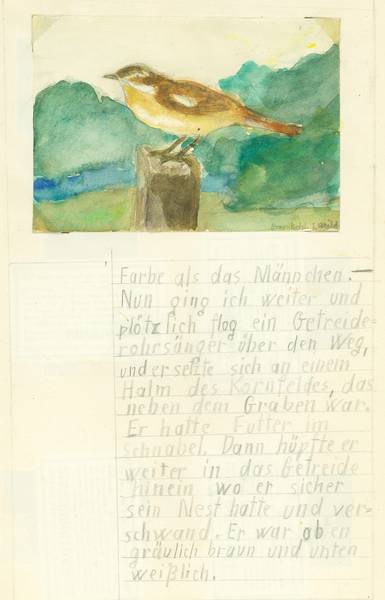 Farbe als das Männchen. —
Nun ging ich weiter und
plötzlich flog ein Getreide-
rohrsänger über den Weg,
und er setzte sich an einem
Halm des Kornfeldes, das
neben dem Graben war.
Er hatte Futter im
Schnabel. Dann hüpfte er
weiter in das Getreide
hinein wo er sicher
sein Nest hatte und ver-
schwand. Er war oben
gräulich braun und unten
weißlich.